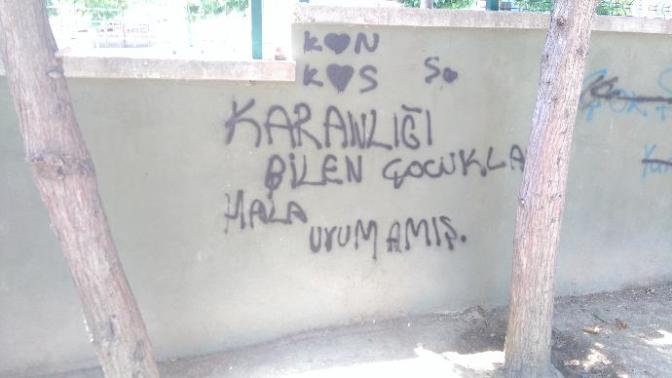 K♥N
K♥S So
KARANLIĞI
BİLEN ÇOCUKLA
HALA
UYUMAMIŞ.